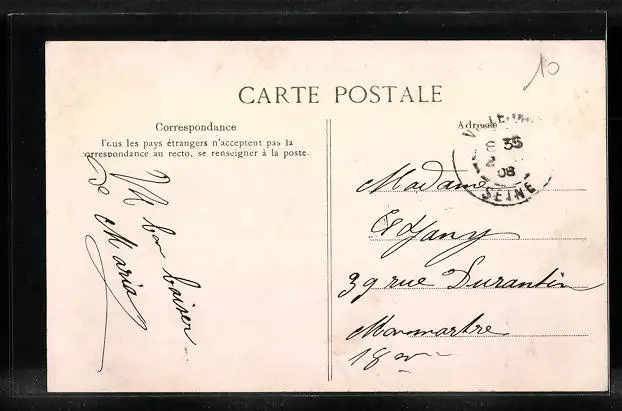 10
CARTE POSTALE
Correspondance
Adresse
Tous les pays étrangers n'acceptent pas la
correspondance au recto, se renseigner à la poste.
8 35
2
08
SEINE
Un bon baiser
de Maria
Madame
39 rue Durantin
Monmartre
18me